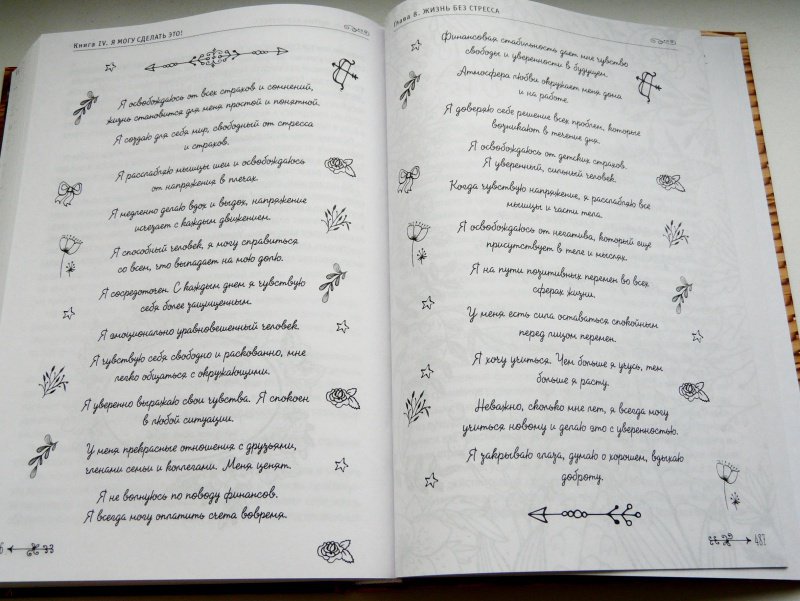 Книга IV. Я МОГУ СДЕЛАТЬ ЭТО!
Я освобождаюсь от всех страхов и сомнений,
жизнь становится для меня простой и понятной.
Я создаю для себя мир, свободный от стресса
и страхов.
Я расслабляю мышцы шеи и освобождаюсь
от напряжения в плечах.
Я медленно делаю вдох и выдох, напряжение
исчезает с каждым движением.
Я способный человек, я могу справиться
со всем, что выпадает на мою долю.
Я сосредоточен. С каждым днем я чувствую
себя более защищенным.
Я эмоционально уравновешенный человек.
Я чувствую себя свободно и раскованно, мне
легко общаться с окружающими.
Я уверенно выражаю свои чувства. Я спокоен
в любой ситуации.
У меня прекрасные отношения с друзьями,
членами семьи и коллегами. Меня ценят.
Я не волнуюсь по поводу финансов.
Я всегда могу оплатить счета вовремя.
6
Глава 8. ЖИЗНЬ БЕЗ СТРЕССА
Финансовая стабильность дает мне чувство
свободы и уверенности в будущем.
Атмосфера любви окружает меня дома
и на работе.
Я доверяю себе решение всех проблем, которые
возникают в течение дня.
Я освобождаюсь от детских страхов.
Я уверенный, сильный человек.
Когда чувствую напряжение, я расслабляю все
мышцы и части тела.
Я освобождаюсь от негатива, который еще
присутствует в теле и мыслях.
Я на пути позитивных перемен во всех
сферах жизни.
У меня есть сила оставаться спокойным
перед лицом перемен.
Я хочу учиться. Чем больше я учусь, тем
больше я расту.
Неважно, сколько мне лет, я всегда могу
учиться новому и делаю это с уверенностью.
Я закрываю глаза, думаю о хорошем, вдыхаю
доброту.
487